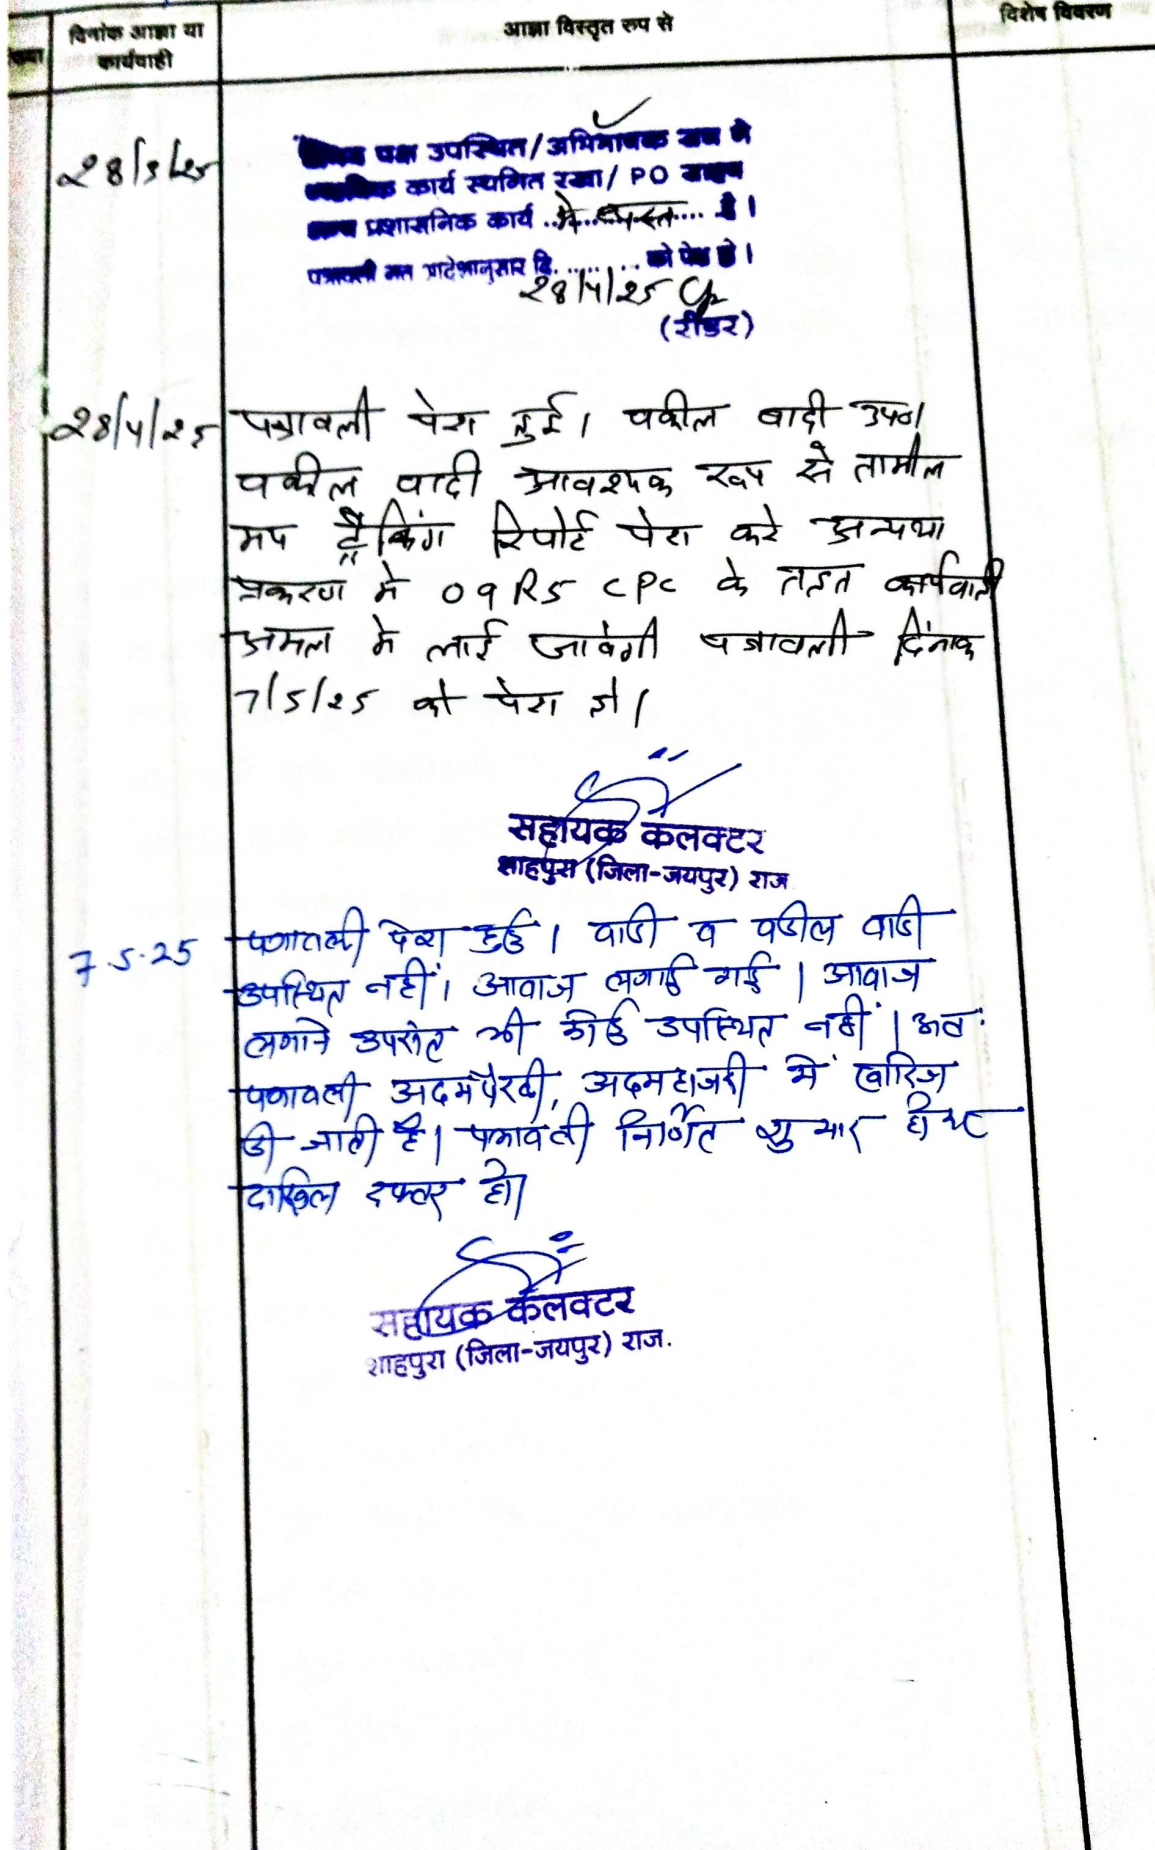 दिनांक आज्ञा या
कार्यवाही
आज्ञा विस्तृत रुप से
विशेष विवरण
28/3/25
पक्ष उपस्थित/अभिभाषक संघ ने
कार्य स्थगित रखा/ PO साहब
अन्य प्रशासनिक कार्य ..में व्यस्त.... है।
पत्रावली गत आदेशानुसार दि. ........ को पेश हो।
28/4/25
(रीडर)
28/4/25
पत्रावली पेश हुई। वकील वादी उप०।
वकील वादी आवश्यक रूप से तामील
मय ट्रैकिंग रिपोर्ट पेश करे अन्यथा
प्रकरण मे 09R5 CPC के तहत कार्यवाही
अमल मे लाई जावेगी पत्रावली दिंनाक
7/5/25 को पेश हो।
सहायक कलक्टर
शाहपुरा (जिला-जयपुर) राज
7.5.25
पत्रावली पेश हुई। वादी व वकील वादी
उपस्थित नहीं। आवाज लगाई गई। आवाज
लगाने उपरांत भी कोई उपस्थित नहीं। अतः
पत्रावली अदमपैरवी, अदमहाजरी में खारिज
की जाती है। पत्रावली निर्णित शुमार होकर
दाखिल दफ्तर हो।
सहायक कलक्टर
शाहपुरा (जिला-जयपुर) राज.